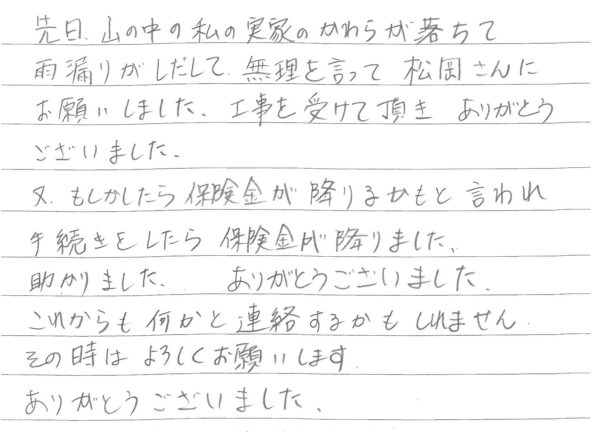 先日、山の中の私の実家のかわらが落ちて
雨漏りがしだして、無理を言って 松岡さんに
お願いしました、工事を受けて頂き ありがとう
ございました、
又、もしかしたら 保険金が 降りるかもと 言われ
手続きをしたら 保険金が降りました、
助かりました、 ありがとうございました、
これからも 何かと 連絡するかも しれません
その時は よろしくお願いします
ありがとうございました、